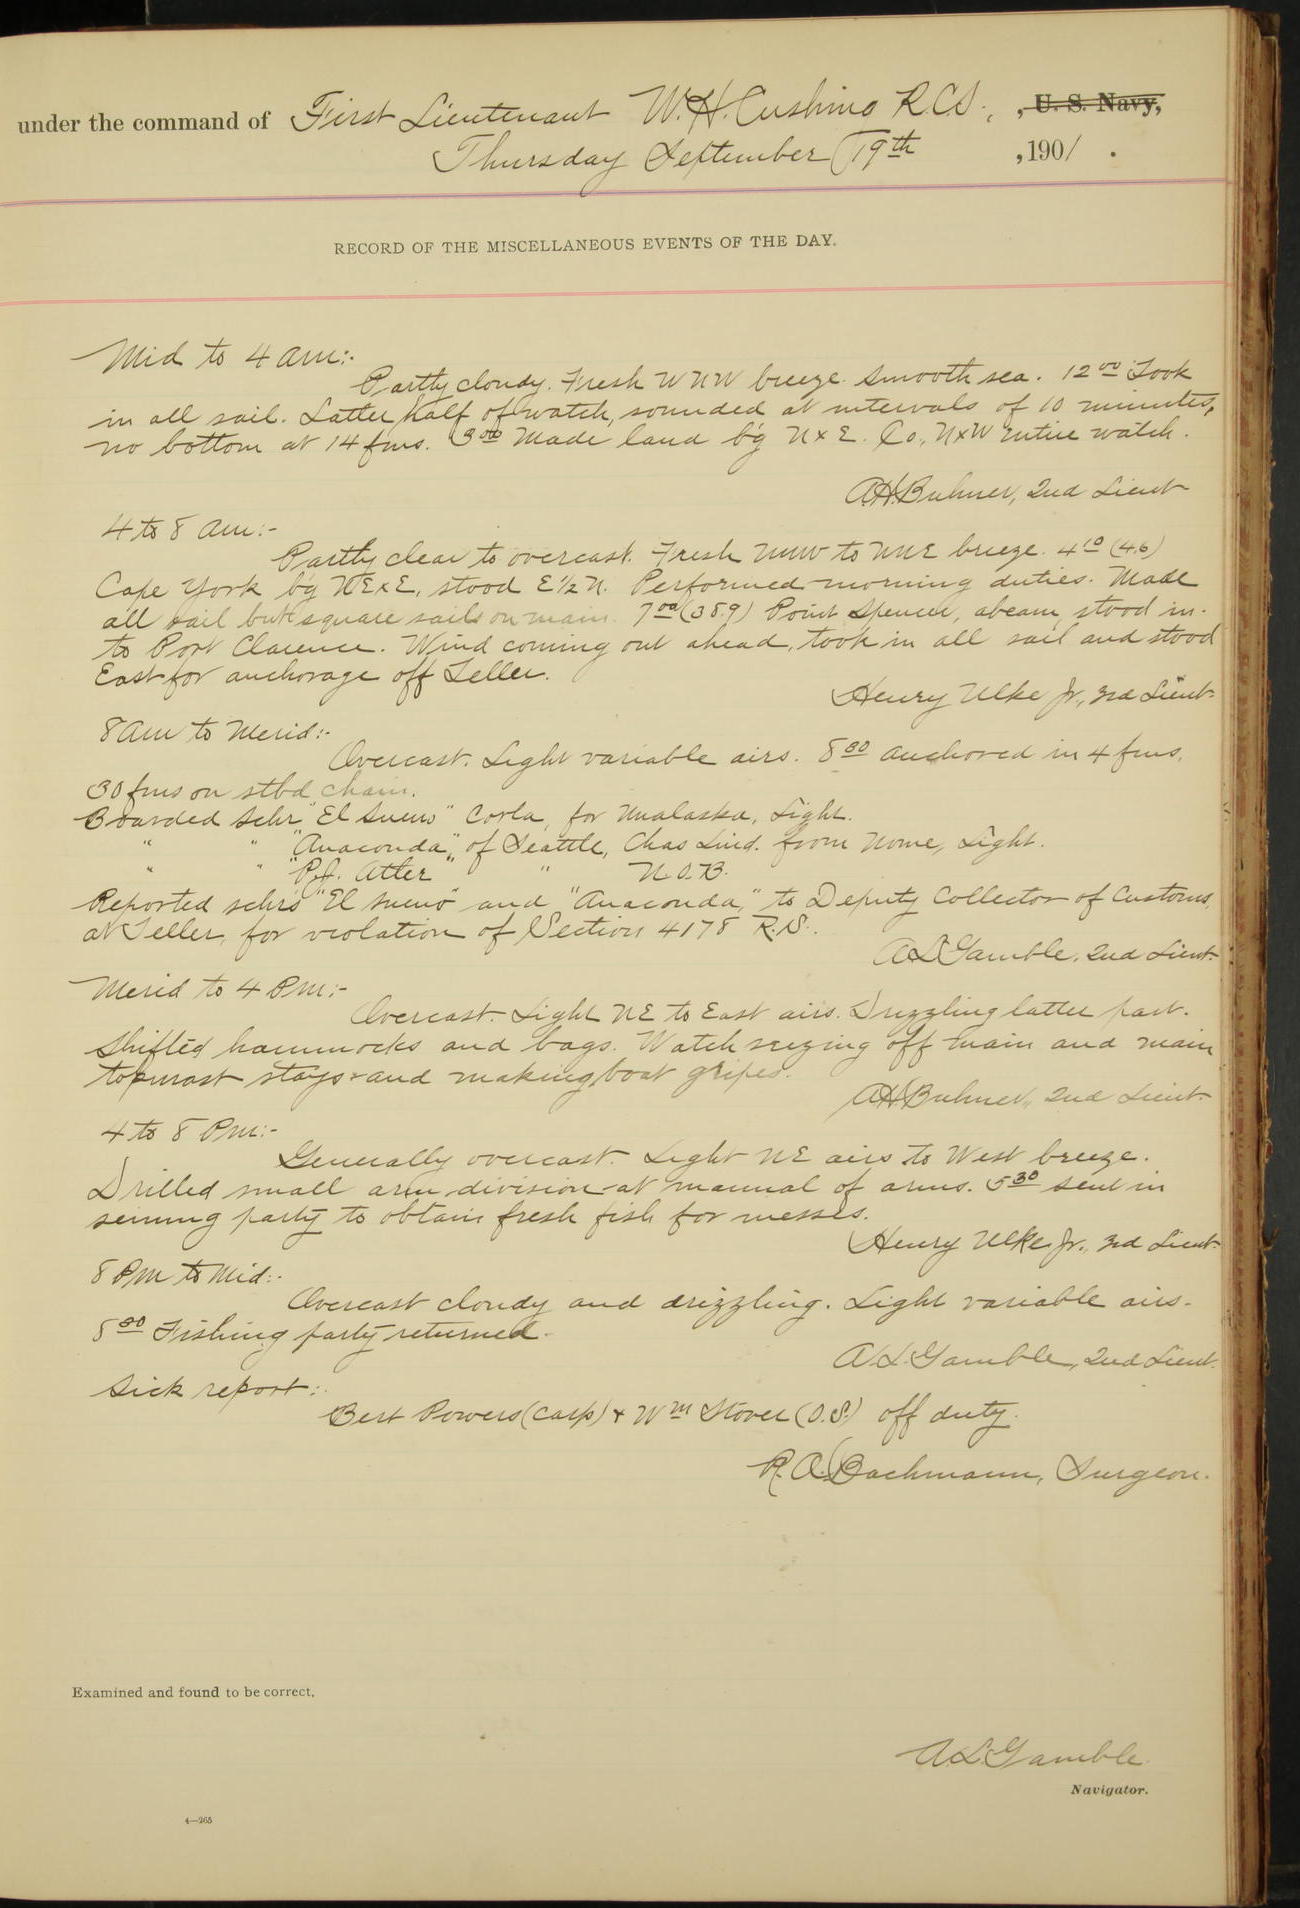 under the command of First Lieutenant W. H. Cushing R.C.S., , U. S. Navy,
Thursday September 19th , 1901 .
RECORD OF THE MISCELLANEOUS EVENTS OF THE DAY.
Mid to 4 am:-
Partly cloudy. Fresh WNW breeze. Smooth sea. 12 00 Took
in all sail. Latter half of watch, sounded at intervals of 10 minutes,
no bottom at 14 fms. 3 00 Made land b'g NxE. Co., NxW entire watch.
A.H. Buhner, 2nd Lieut
4 to 8 am:-
Partly clear to overcast. Fresh NNW to NNE breeze. 4 10 (4.6)
Cape York b'g NExE, stood E½N. Performed morning duties. Made
all sail but square sails on main. 7 00 (38.9) Point Spencer, abeam, stood in-
to Port Clarence. Wind coming out ahead, took in all sail and stood
East for anchorage off Teller.
Henry Ulke Jr., 3rd Lieut.
8 am to Merid:-
Overcast. Light variable airs. 8 30 anchored in 4 fms,
30 fms on stbd chain.
Boarded Schr "El Sueno" for Unalaska, Light.
" " "Anaconda", of Seattle, Chas Lind. from Nome, Light.
" " "P.J. " " N.O.B.
Reported schrs "El Sueno" and "Anaconda," to Deputy Collector of Customs,
at Teller, for violation of Section 4178 R.S..
A.L. Gamble, 2nd Lieut.
Merid to 4 Pm:-
Overcast. Light NE to East airs. Drizzling latter part.
Shifted hammocks and bags. Watch seizing off main and main
topmast stays and making boat gripes.
A.H. Buhner, 2nd Lieut.
4 to 8 Pm:-
Generally overcast. Light NE airs to West breeze.
Drilled small arm division at manual of arms. 5 30 sent in
seining party to obtain fresh fish for messes.
Henry Ulke Jr., 3rd Lieut.
8 Pm to Mid:-
Overcast cloudy and drizzling. Light variable airs.
8 30 Fishing party returned.
A.L. Gamble, 2nd Lieut.
Sick report:
Bert Powers (Carp) + Wm Stover (O.S.) off duty.
R. A. Bachmann, Surgeon.
Examined and found to be correct,
A. L. Gamble
Navigator.
4—265